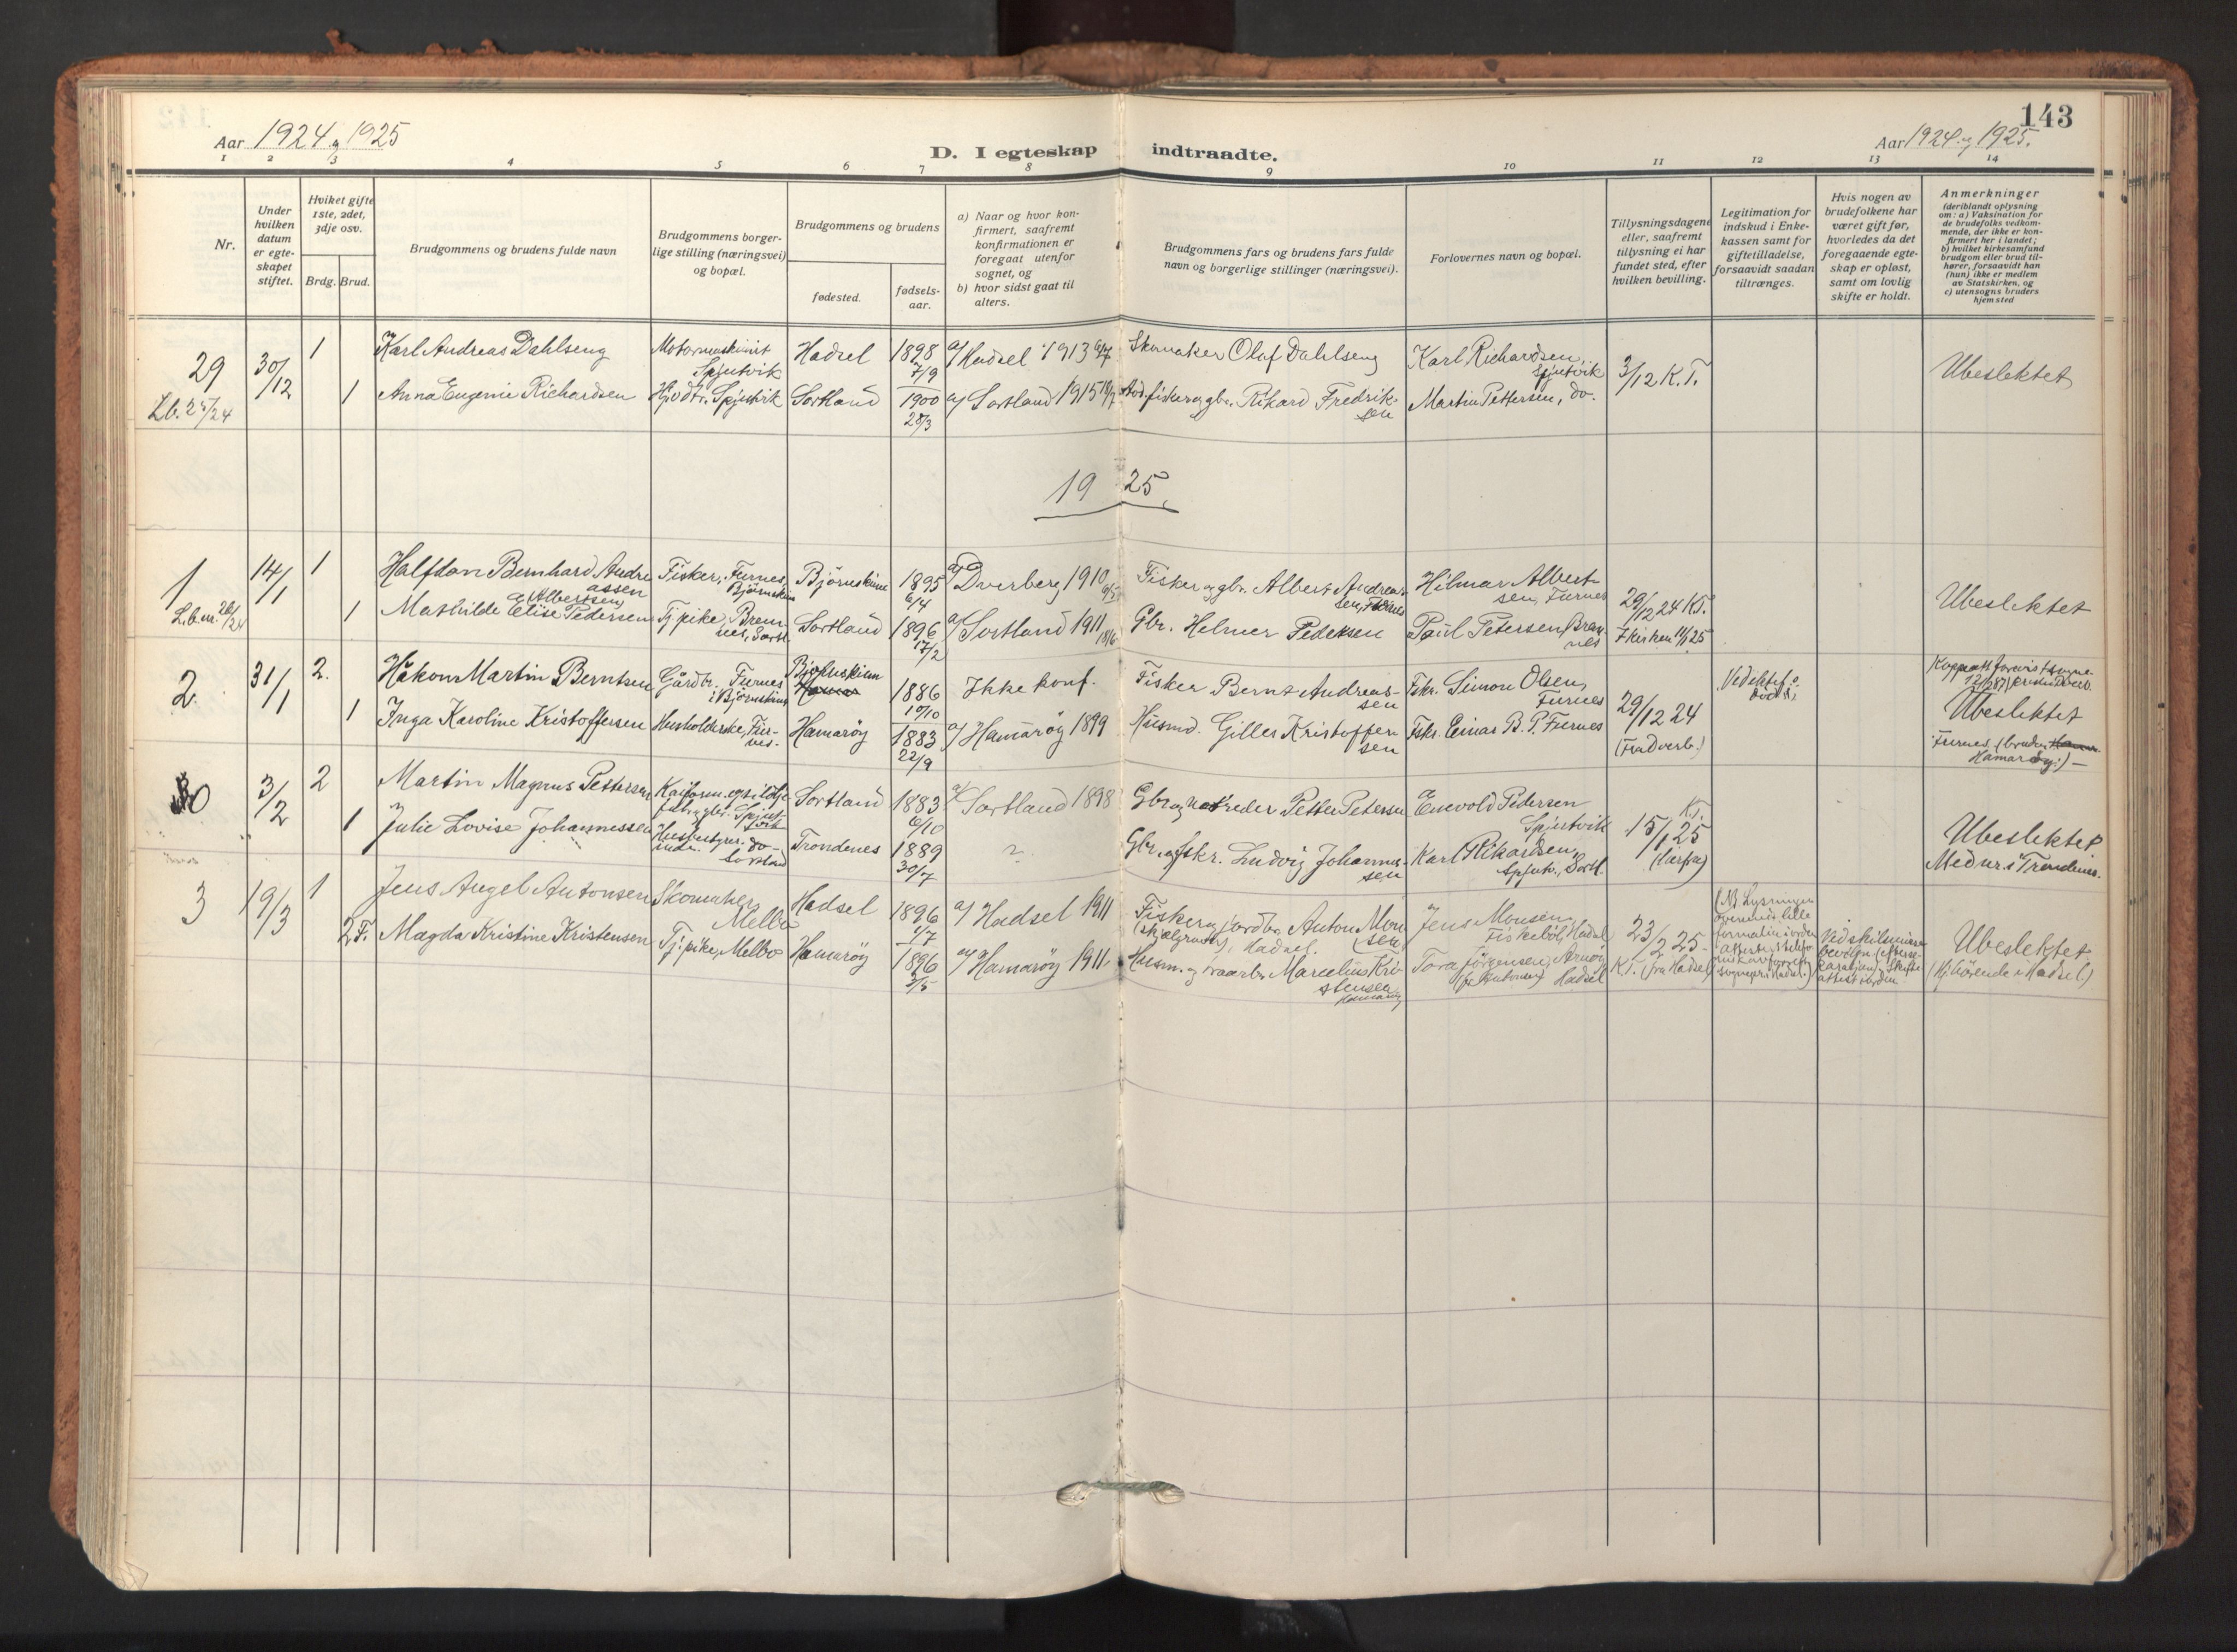 143
Aar 1924 og 1925
D. I egteskap indtraadte.
Aar 1924 og 1925.
1 2 3 4 5 6 7 8 9 10 11 12 13 14
Nr.
Under hvilken datum er egteskapet stiftet.
Hviket gifte 1ste, 2det, 3dje osv.
Brdg. Brud.
Brudgommens og brudens fulde navn
Brudgommens borgerlige stilling (næringsvei) og bopæl.
Brudgommens og brudens
fødested.
fødselsaar.
a) Naar og hvor konfirmert, saafremt konfirmationen er foregaat utenfor sognet, og
b) hvor sidst gaat til alters.
Brudgommens fars og brudens fars fulde navn og borgerlige stillinger (næringsvei).
Forlovernes navn og bopæl.
Tillysningsdagene eller, saafremt tillysning ei har fundet sted, efter hvilken bevilling.
Legitimation for indskud i Enkekassen samt for giftetilladelse, forsaavidt saadan tiltrænges.
Hvis nogen av brudefolkene har været gift før, hvorledes da det foregaaende egteskap er opløst, samt om lovlig skifte er holdt.
Anmerkninger
(deriblandt oplysning om: a) Vaksination for de brudefolks vedkommende, der ikke er konfirmert her i landet; b) hvilket kirkesamfund brudgom eller brud tilhører, forsaavidt han (hun) ikke er medlem av Statskirken, og c) utensogns bruders hjemsted
29 30/12 1 Karl Andreas Dahlseng Motormaskinist Spjutvik Hadsel 1898 7/9 a/ Hadsel 1913 Skomaker Olaf Dahlseng Karl Richardsen, Spjutvik 3/12 K.T. Ubeslektet
Lb. 25/24 1 Anna Eugenie Richardsen Spjutvik Sortland 1900 28/3 a/ Sortland 1915 fisker og gbr. Rikard Fredriksen Martin Pettersen, do.
1925.
1 14/1 1 Halfdan Bernhard Andreassen Fisker, Furnes, Bjørnskinn Bjørnskinn 1895 6/4 a/ Dverberg 1910 Fisker og gbr. Albert Andreassen, Furnes Hilmar Albertsen, Furnes 29/12 24 K.T. Ubeslektet
(Albertsen)
L.b. nr. 26/24 1 Mathilde Elise Pedersen Tj. pike, Bremnes, Sortl. Sortland 1896 17/2 a/ Sortland 1911 Gbr. Helmer Pedersen Paul Petersen, Bremnes I kirken 11/1 25
2 31/1 2. Håkon Martin Berntsen Gårdbr. Furnes i Bjørnskinn Bjørnskinn 1886 10/10 Ikke konf. Fisker Bernt Andreassen Fskr. Simon Olsen, Furnes 29/12 24 Ubeslektet
1 Inga Karoline Kristoffersen Husholderske, Furnes. Hamarøy 1883 22/9 a/ Hamarøy 1899 Husmd. Gilles Kristoffersen Fskr. Einar B. P. Furnes (Fra Dverb.) Furnes, (bruden Hamarøy:) —
3/2 2 Martin Magnus Pettersen Spjutvik Sortland 1883 6/10 a/ Sortland 1898 Gbr. og notreder Petter Petersen Enevold Pedersen Spjutvik K.T. 15/1 25 Ubeslektet
1 Julie Lovise Johannessen do. Sortland Trondenes 1889 30/7 ? Gbr. og fskr. Ludvig Johannessen Karl Rikardsen, Spjutv., Sortl. Med nr. i Trondenes.
3 19/3 1 Jens Angel Antonsen Skomaker Melbo Hadsel 1896 1/7 a/ Hadsel 1911 Fisker og jordbr. Anton Monsen Hadsel. Jens Monsen, Fiskebøl, Hadsel 23/2 25 Ubeslektet.
2 F. Magda Kristine Kristensen Tj. pike, Melbo Hamarøy 1896 3/5 a/ Hamarøy 1911. Husm. og Marcelius Kristensen Hamarøy Tora Jørgensen, Hadsel K.T. (fra Hadsel) (Hjhørende i Hadsel)